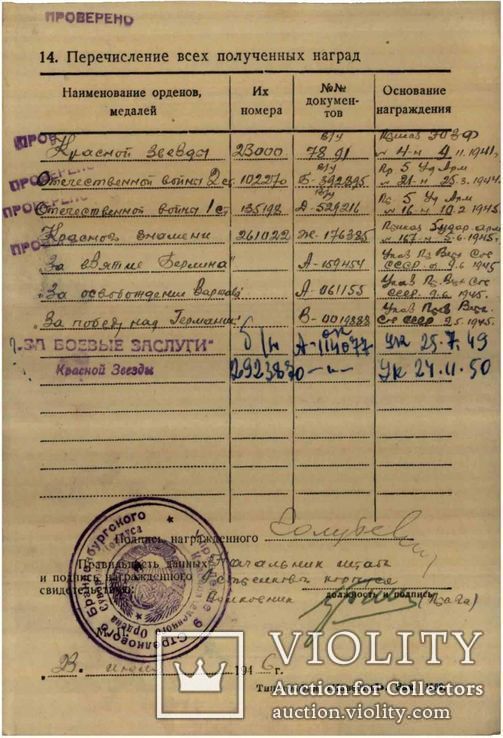 ПРОВЕРЕНО
14. Перечисление всех полученных наград
Наименование орденов, медалей
Их номера
№№ документов
Основание награждения
Красной Звезды 23000 в/у 7891 4-н 4.11.1941г.
Отечественной войны 2 ст. 102270 Б-592895 Пр 5 Уд Арм 21-н 25.3.1944
Отечественной войны 1 ст 135198 А-529216 Пр. 5 Уд Арм 16 н 10.2.1945
Красного знамени 261022 Ж-176385 167-н 5.6.1945
"За взятие Берлина" А-159454 СССР 9.6.1945
"За освобождение Варшавы" А-061155 СССР 9.6.1945
"За победу над Германией" В-0019888 СССР 9.5.1945
"ЗА БОЕВЫЕ ЗАСЛУГИ" б/н А-114077 Ук 25.7.49
Красной Звезды 2923870 —„— Ук 24.11.50
ПРОВЕРЕНО
ПРОВЕРЕНО
Подпись награжденного
Правильность данных
и подпись награжденного
свидетельствую:
Начальник штаба
корпуса
Полковник
должность и подпись
194 6 г.
VIOLITY
Auction for Collectors
auction.violity.com